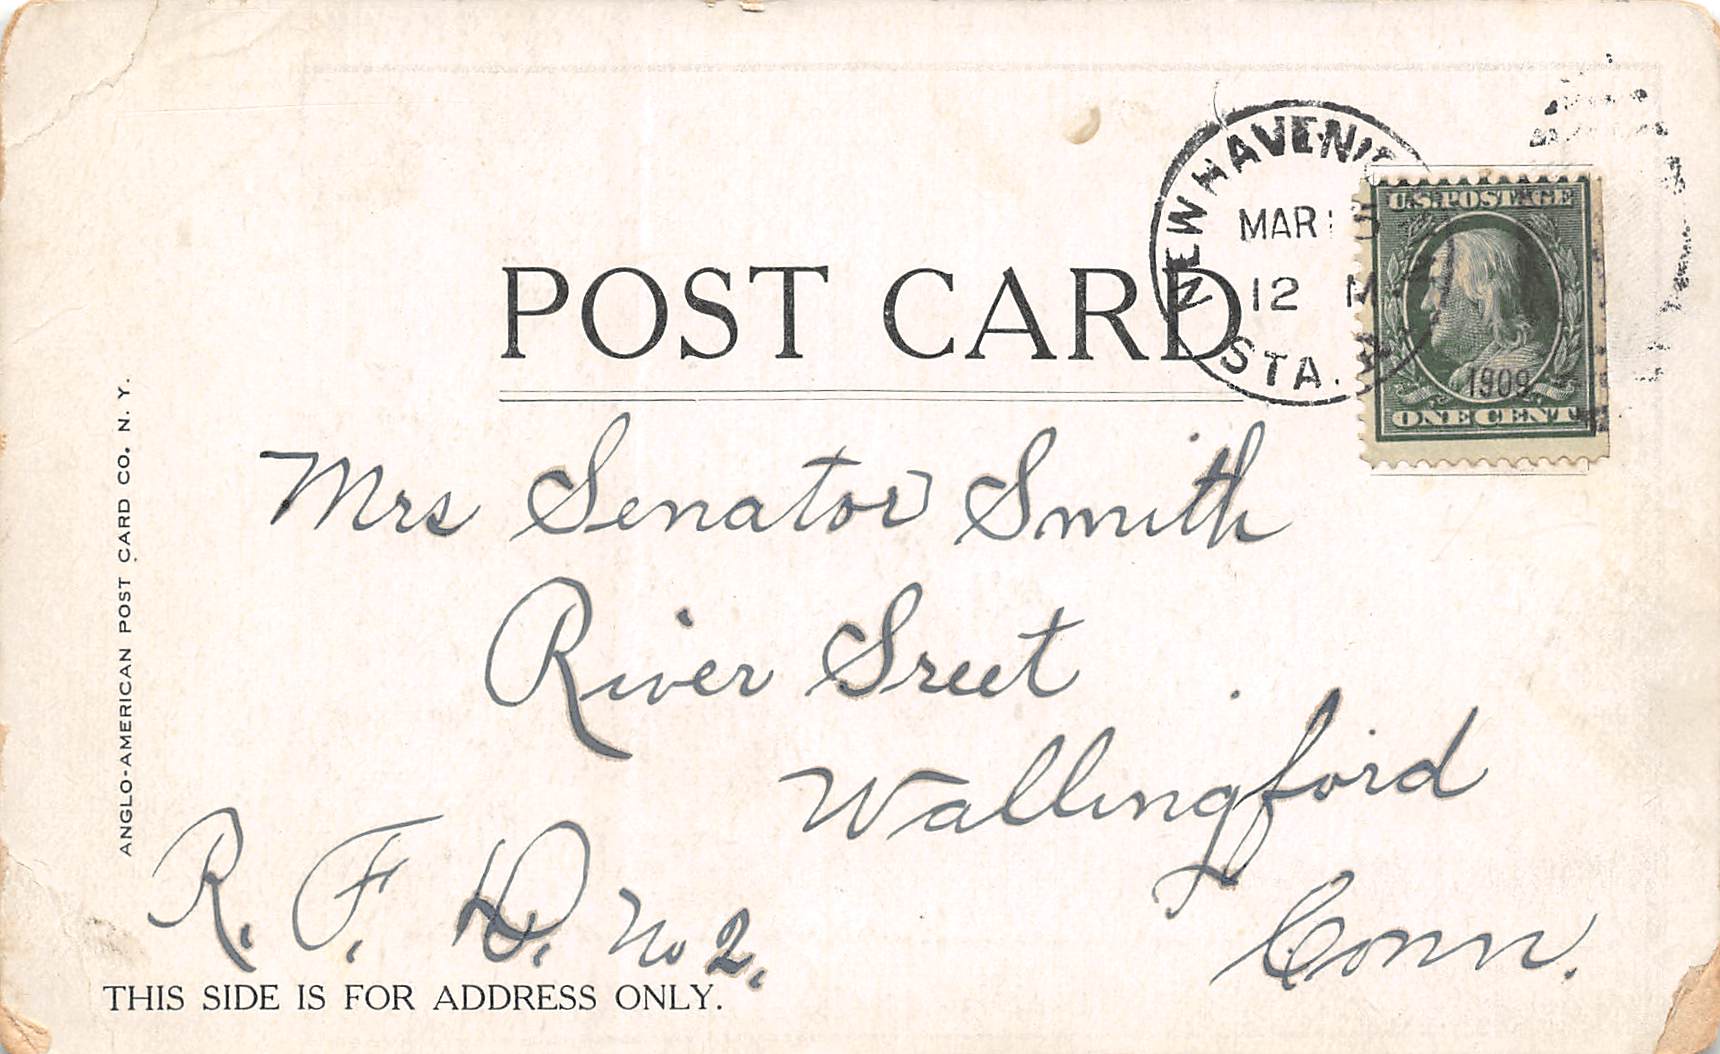 NEW HAVEN,
MAR
12 M
STA. A.
1909
U.S. POSTAGE
ONE CENT
POST CARD
Mrs Senator Smith
River Sreet
Wallingford
Conn.
R. F. D. No 2.
THIS SIDE IS FOR ADDRESS ONLY.
ANGLO-AMERICAN POST CARD CO. N. Y.